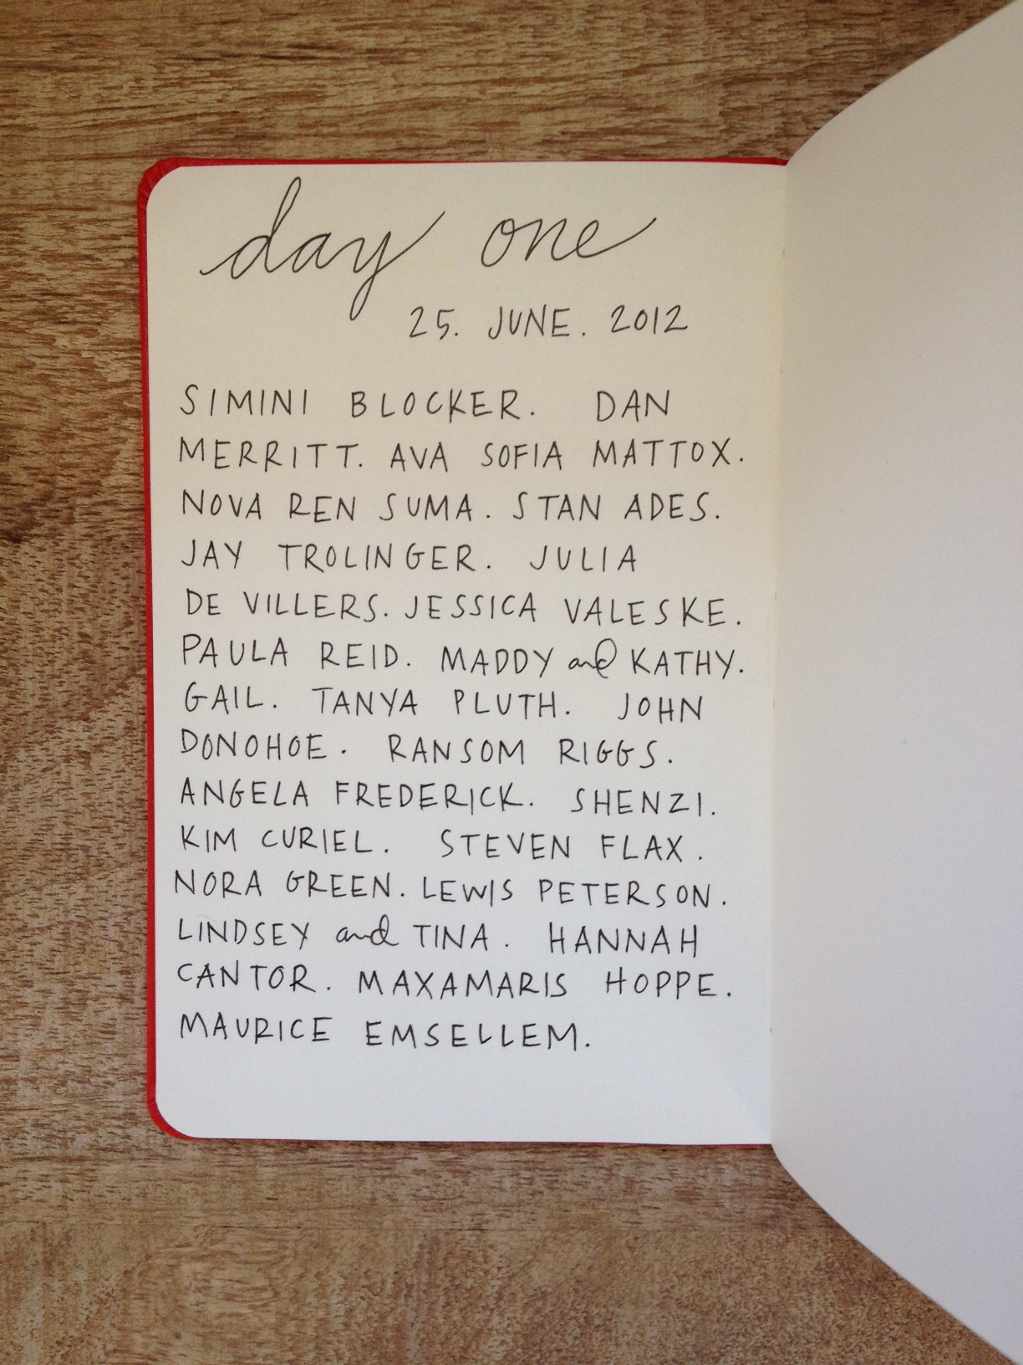 day one
25. JUNE. 2012
SIMINI BLOCKER. DAN
MERRITT. AVA SOFIA MATTOX.
NOVA REN SUMA. STAN ADES.
JAY TROLINGER. JULIA
DE VILLERS. JESSICA VALESKE.
PAULA REID. MADDY and KATHY.
GAIL. TANYA PLUTH. JOHN
DONOHOE. RANSOM RIGGS.
ANGELA FREDERICK. SHENZI.
KIM CURIEL. STEVEN FLAX.
NORA GREEN. LEWIS PETERSON.
LINDSEY and TINA. HANNAH
CANTOR. MAXAMARIS HOPPE.
MAURICE EMSELLEM.